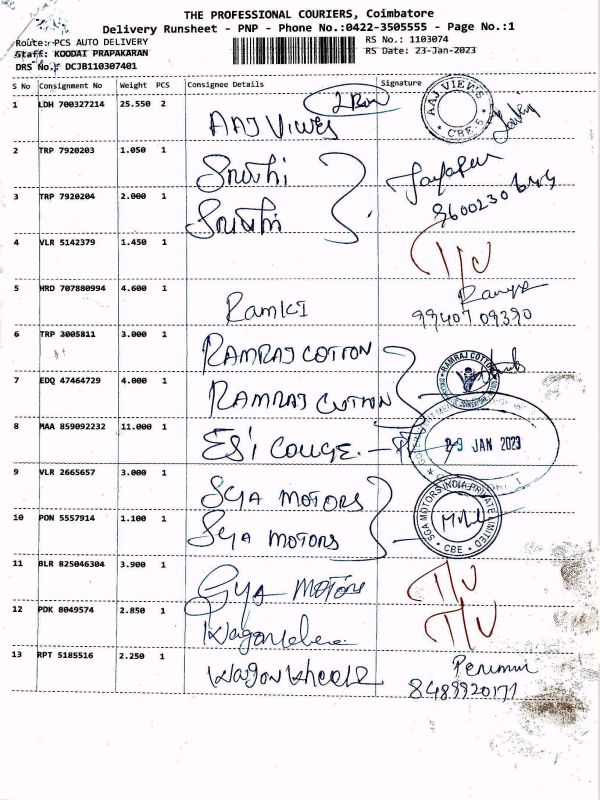 THE PROFESSIONAL COURIERS, Coimbatore
Delivery Runsheet - PNP - Phone No.:0422-3505555 - Page No.:1
Route: PCS AUTO DELIVERY
RS No.: 1103074
Staff: KOODAI PRAPAKARAN
RS Date: 23-Jan-2023
DRS No.: DCJB110307401
S No Consignment No Weight PCS Consignee Details Signature
1 LDH 700327214 25.550 2 AAJ Viwes 2 Box AAJ VIEWS CBE
2 TRP 7920203 1.050 1 Sruthi
3 TRP 7920204 2.000 1 Sruthi
4 VLR 5142379 1.450 1
5 HRD 707880994 4.600 1 RamKI Ramya
99407 09390
6 TRP 3005811 3.000 1 RAMRAJ COTTON RAMRAJ COTTON
7 EDQ 47464729 4.000 1 RAMRAJ COTTON
8 MAA 859092232 11.000 1 ESI 23 JAN 2023
9 VLR 2665657 3.000 1 SGA MOTORS
10 PON 5557914 1.100 1 SGA MOTORS SGA MOTORS INDIA PRIVATE LIMITED CBE
11 BLR 825046304 3.900 1 MOTORS
12 PDK 8049574 2.850 1
13 RPT 5185516 2.250 1
8489920171